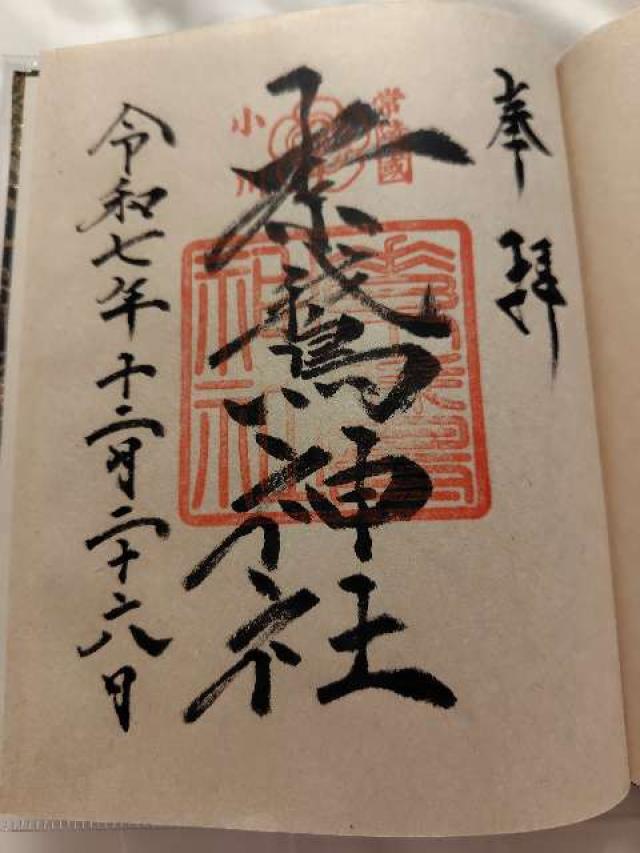 奉拝
常陸國
小川
素鵞神社
素鵞
神社
令和七年十二月二十六日